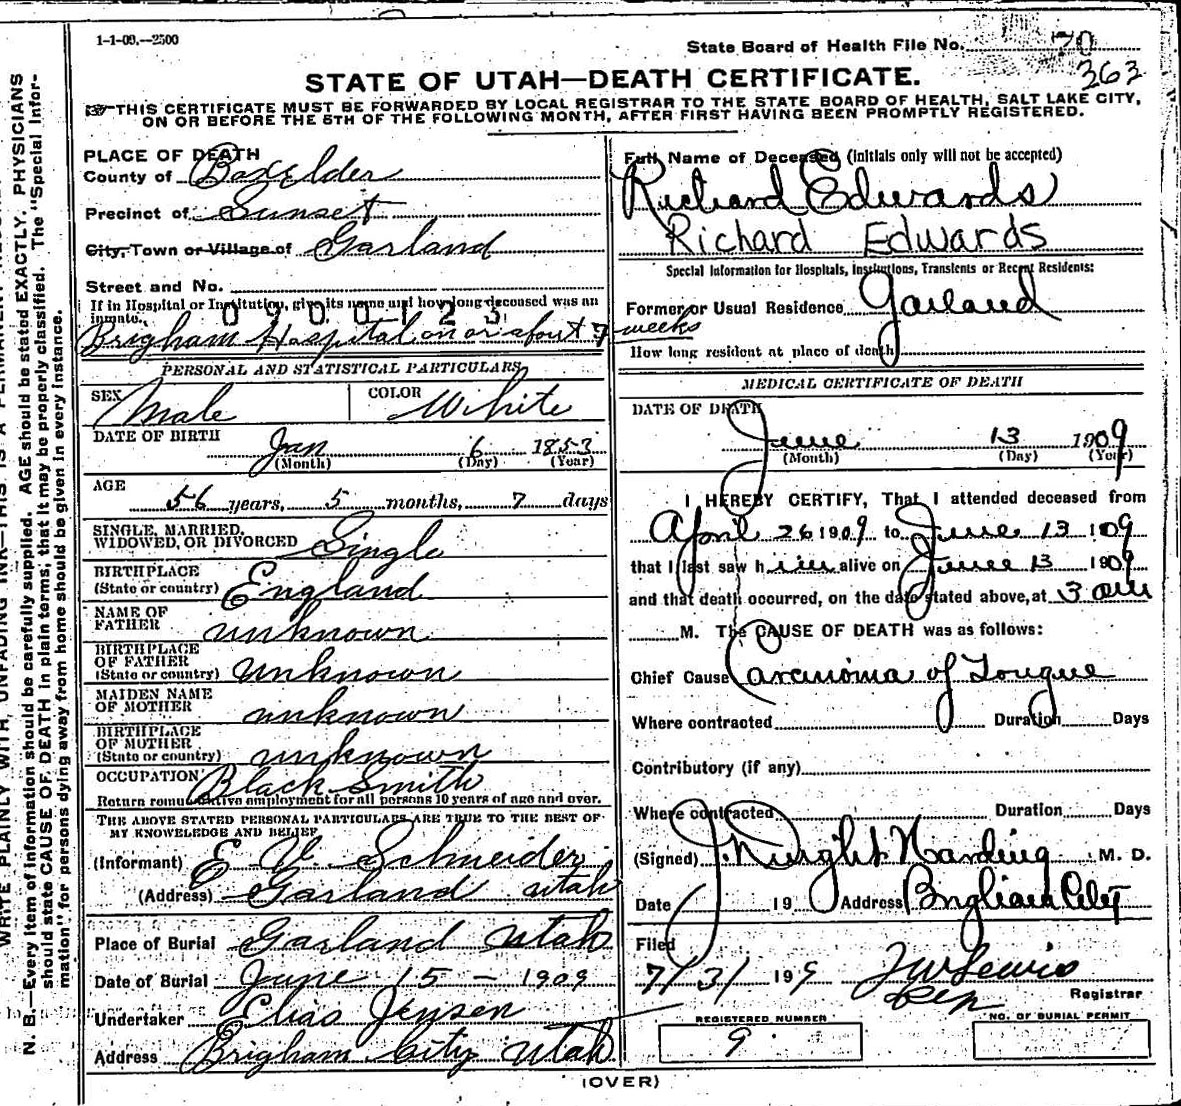 1-1-09.--2500
State Board of Health File No. 70
263
STATE OF UTAH—DEATH CERTIFICATE.
THIS CERTIFICATE MUST BE FORWARDED BY LOCAL REGISTRAR TO THE STATE BOARD OF HEALTH, SALT LAKE CITY,
ON OR BEFORE THE 5TH OF THE FOLLOWING MONTH, AFTER FIRST HAVING BEEN PROMPTLY REGISTERED.
WRITE PLAINLY WITH UNFADING INK—THIS IS A PERMANENT
N. B.—Every item of information should be carefully supplied. AGE should be stated EXACTLY. PHYSICIANS
should state CAUSE OF DEATH in plain terms, that it may be properly classified. The "Special Infor-
mation" for persons dying away from home should be given in every instance.
PLACE OF DEATH
County of Box Elder
Precinct of Sunset
City, Town or Village of Garland
Street and No.
If in Hospital or Institution, give its name and how long deceased was an
inmate.
0900123
Brigham Hospital on or about 7 weeks
PERSONAL AND STATISTICAL PARTICULARS
SEX Male COLOR White
DATE OF BIRTH Jan 6 1853
(Month) (Day) (Year)
AGE
56 years, 5 months, 7 days
SINGLE, MARRIED,
WIDOWED, OR DIVORCED Single
BIRTHPLACE
(State or country) England
NAME OF
FATHER unknown
BIRTHPLACE
OF FATHER
(State or country) unknown
MAIDEN NAME
OF MOTHER unknown
BIRTHPLACE
OF MOTHER
(State or country) unknown
OCCUPATION Black Smith
Return remunerative employment for all persons 10 years of age and over.
THE ABOVE STATED PERSONAL PARTICULARS ARE TRUE TO THE BEST OF
MY KNOWLEDGE AND BELIEF
(Informant) E V Schneider
(Address) Garland Utah
Place of Burial Garland Utah
Date of Burial June 15 - 1909
Undertaker Elias Jensen
Address Brigham City Utah
Full Name of Deceased (Initials only will not be accepted)
Richard Edwards
Richard Edwards
Special Information for Hospitals, Institutions, Transients or Recent Residents:
Former or Usual Residence Garland
How long resident at place of death
MEDICAL CERTIFICATE OF DEATH
DATE OF DEATH
June 13 1909
(Month) (Day) (Year)
I HEREBY CERTIFY, That I attended deceased from
April 26 1909 to June 13 1909
that I last saw him alive on June 13 1909
and that death occurred, on the date stated above, at 3 am
M. The CAUSE OF DEATH was as follows:
Chief Cause Carcinoma of Tongue
Where contracted Duration Days
Contributory (if any)
Where contracted Duration Days
(Signed) J. Dwight Harding M. D.
Date 19 Address Brigham City
Filed
7/31 1909 J W Lewis
Dep Registrar
REGISTERED NUMBER
9
NO. OF BURIAL PERMIT
(OVER)